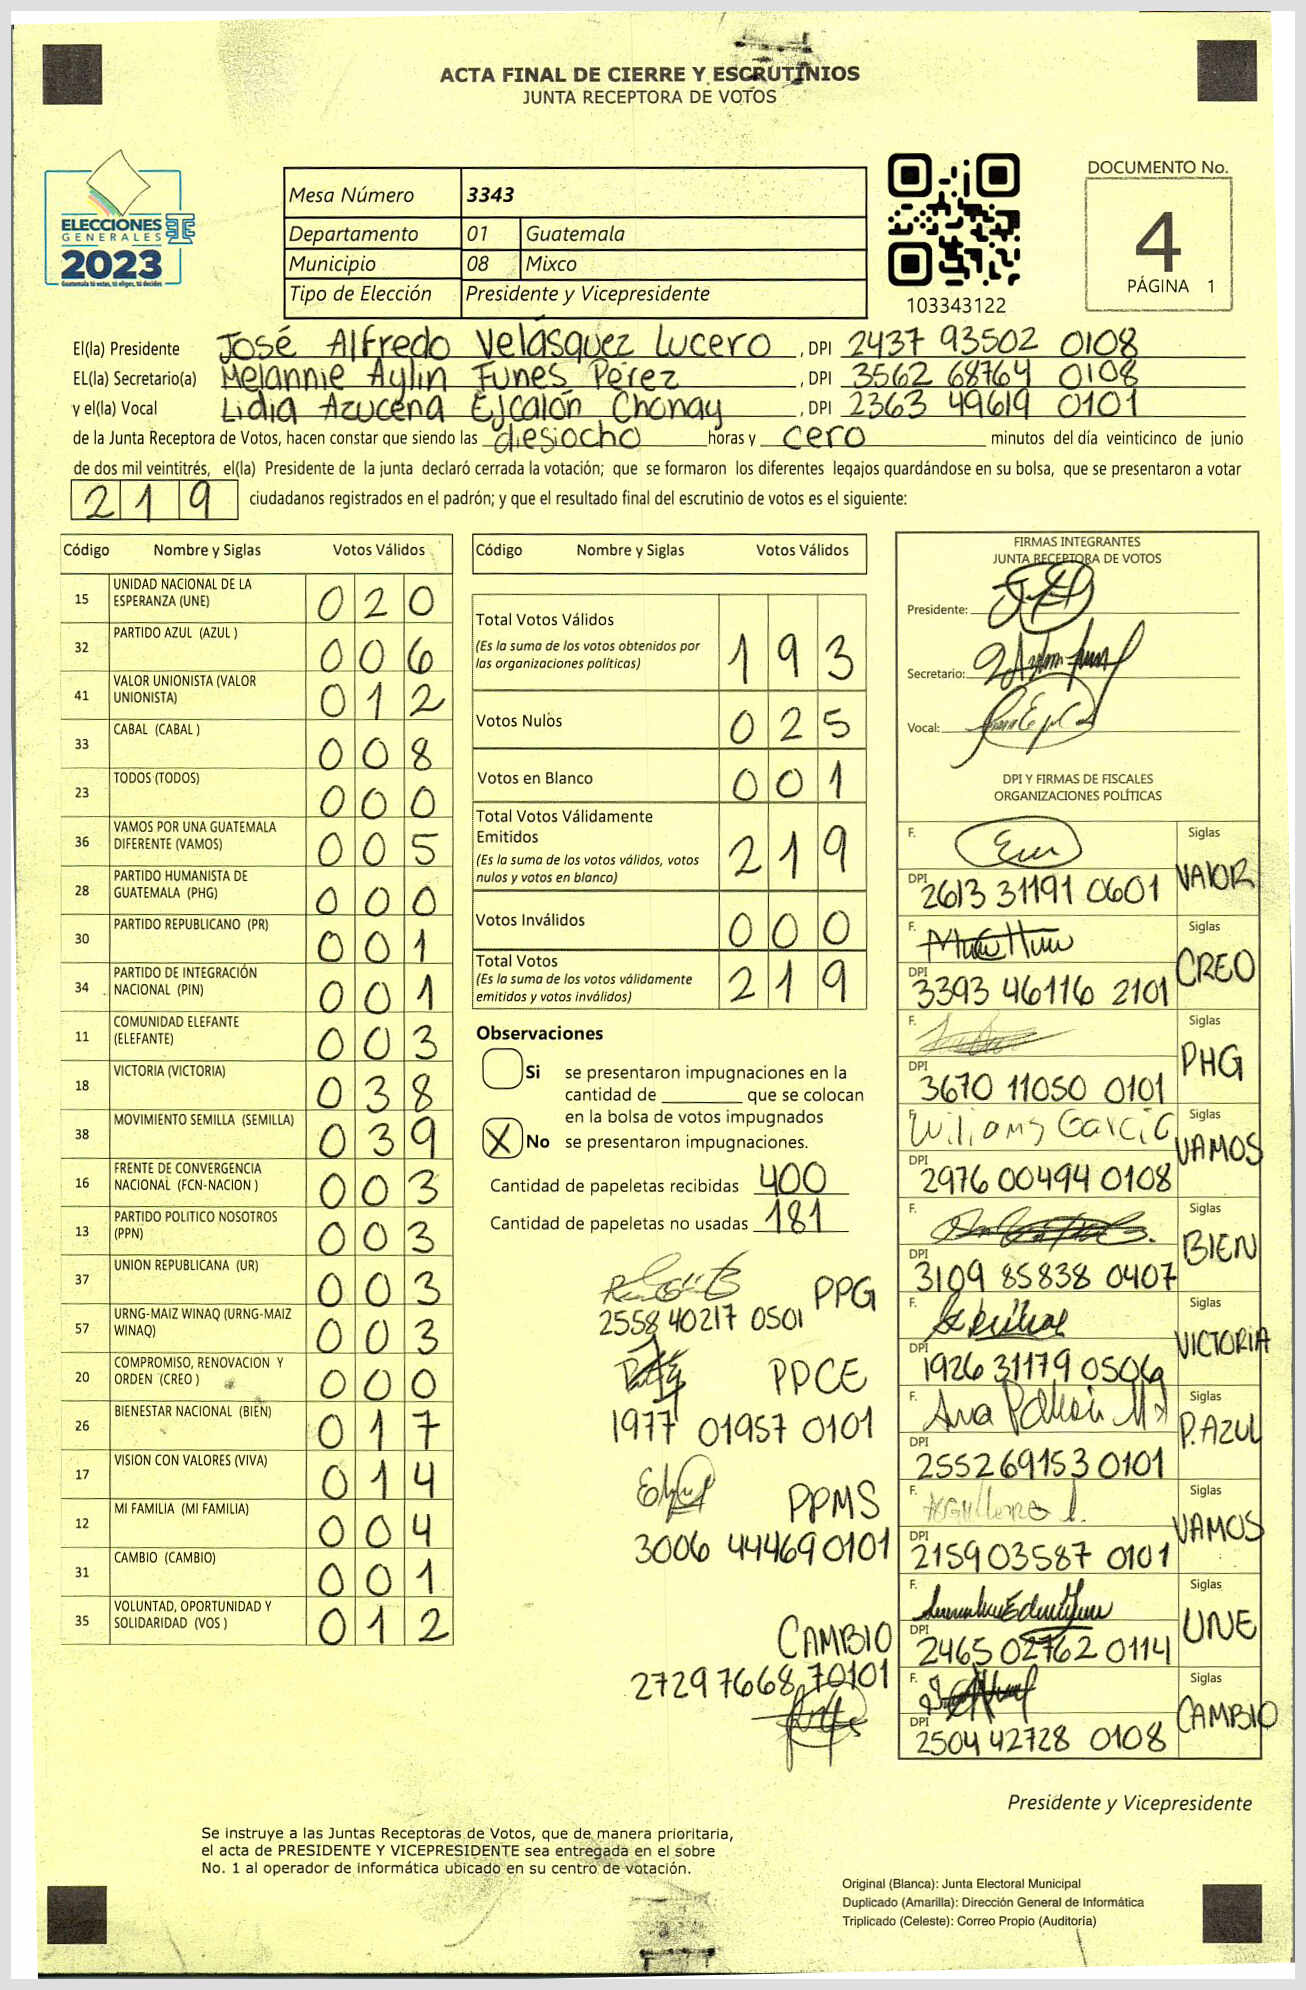 ACTA FINAL DE CIERRE Y ESCRUTINIOS
JUNTA RECEPTORA DE VOTOS
ELECCIONES
GENERALES
2023
Guatemala tú votas, tú eliges, tú decides
Mesa Número 3343
Departamento 01 Guatemala
Municipio 08 Mixco
Tipo de Elección Presidente y Vicepresidente
103343122
DOCUMENTO No.
4
PÁGINA 1
El(la) Presidente José Alfredo Velásquez Lucero , DPI 2437 93502 0108
EL(la) Secretario(a) Melannie Aylin Funes Pérez , DPI 3562 68764 0108
y el(la) Vocal Lidia Azucena Ejcalón Chonay , DPI 2363 49619 0101
de la Junta Receptora de Votos, hacen constar que siendo las diesiocho horas y cero minutos del día veinticinco de junio
de dos mil veintitrés, el(la) Presidente de la junta declaró cerrada la votación; que se formaron los diferentes legajos guardándose en su bolsa, que se presentaron a votar
219 ciudadanos registrados en el padrón; y que el resultado final del escrutinio de votos es el siguiente:
Código Nombre y Siglas Votos Válidos
15 UNIDAD NACIONAL DE LA ESPERANZA (UNE) 020
32 PARTIDO AZUL (AZUL ) 006
41 VALOR UNIONISTA (VALOR UNIONISTA) 012
33 CABAL (CABAL ) 008
23 TODOS (TODOS) 000
36 VAMOS POR UNA GUATEMALA DIFERENTE (VAMOS) 005
28 PARTIDO HUMANISTA DE GUATEMALA (PHG) 000
30 PARTIDO REPUBLICANO (PR) 001
34 PARTIDO DE INTEGRACIÓN NACIONAL (PIN) 001
11 COMUNIDAD ELEFANTE (ELEFANTE) 003
18 VICTORIA (VICTORIA) 038
38 MOVIMIENTO SEMILLA (SEMILLA) 039
16 FRENTE DE CONVERGENCIA NACIONAL (FCN-NACION ) 003
13 PARTIDO POLITICO NOSOTROS (PPN) 003
37 UNION REPUBLICANA (UR) 003
57 URNG-MAIZ WINAQ (URNG-MAIZ WINAQ) 003
20 COMPROMISO, RENOVACION Y ORDEN (CREO ) 000
26 BIENESTAR NACIONAL (BIEN) 017
17 VISION CON VALORES (VIVA) 014
12 MI FAMILIA (MI FAMILIA) 004
31 CAMBIO (CAMBIO) 001
35 VOLUNTAD, OPORTUNIDAD Y SOLIDARIDAD (VOS ) 012
Código Nombre y Siglas Votos Válidos
Total Votos Válidos 193
(Es la suma de los votos obtenidos por
las organizaciones políticas)
Votos Nulos 025
Votos en Blanco 001
Total Votos Válidamente
Emitidos 219
(Es la suma de los votos válidos, votos
nulos y votos en blanco)
Votos Inválidos 000
Total Votos 219
(Es la suma de los votos válidamente
emitidos y votos inválidos)
Observaciones
Si se presentaron impugnaciones en la
cantidad de ________ que se colocan
en la bolsa de votos impugnados
X No se presentaron impugnaciones.
Cantidad de papeletas recibidas 400
Cantidad de papeletas no usadas 181
PPG
2558 40217 0501
PPCE
1977 01957 0101
PPMS
3006 44469 0101
CAMBIO
27297668 70101
FIRMAS INTEGRANTES
JUNTA RECEPTORA DE VOTOS
Presidente:
Secretario:
Vocal:
DPI Y FIRMAS DE FISCALES
ORGANIZACIONES POLÍTICAS
F. Siglas
DPI 2613 31191 0601 VALOR
F. Siglas
DPI 3393 46116 2101 CREO
F. Siglas
DPI 3670 11050 0101 PHG
F. Williams García Siglas
DPI 2976 00494 0108 VAMOS
F. Siglas
DPI 3109 85838 0407 BIEN
F. Siglas
DPI 1926 31179 0506 VICTORIA
F. Ana Siglas
DPI 2552 69153 0101 P. AZUL
F. Siglas
DPI 2159 03587 0101 VAMOS
F. Siglas
DPI 2465 02762 0114 UNE
F. Siglas
DPI 2504 42728 0108 CAMBIO
Presidente y Vicepresidente
Se instruye a las Juntas Receptoras de Votos, que de manera prioritaria,
el acta de PRESIDENTE Y VICEPRESIDENTE sea entregada en el sobre
No. 1 al operador de informática ubicado en su centro de votación.
Original (Blanca): Junta Electoral Municipal
Duplicado (Amarilla): Dirección General de Informática
Triplicado (Celeste): Correo Propio (Auditoría)